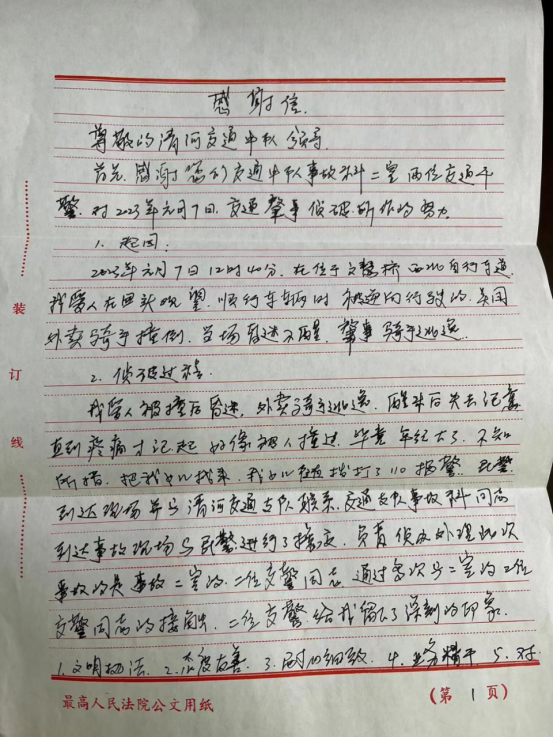 感谢信.
尊敬的清河交通中队领导.
首先感谢您们交通中队事故科二室两位交通干
警.对2023年元月7日.交通肇事侦破.所作的努力.
1. 起因:
2023年元月7日12时40分.在位于文慧桥西北自行车道.
我爱人在回头观望.顺行车辆时被逆向行驶的.美团
外卖骑手撞倒.当场昏迷不醒.肇事骑手逃逸.
2. 侦破过程.
我爱人被撞后昏迷.外卖骑手逃逸.醒来后失去记忆
直到疼痛才记起好像被人撞过.毕竟年纪大了.不知
所措.把我女儿找来.我女儿拨打了110报警.民警
到达现场并与清河交通支队联系.交通支队事故科同志
到达事故现场与民警进行了接交.负责侦破处理此次
事故的是事故二室的.二位交警同志通过多次与二室的二位
交警同志的接触.二位交警给我留下了深刻的印象.
1.文明执法.2.态度友善.3.耐心细致.4.业务精干.5.对
装
订
线
最高人民法院公文用纸
(第 1 页)